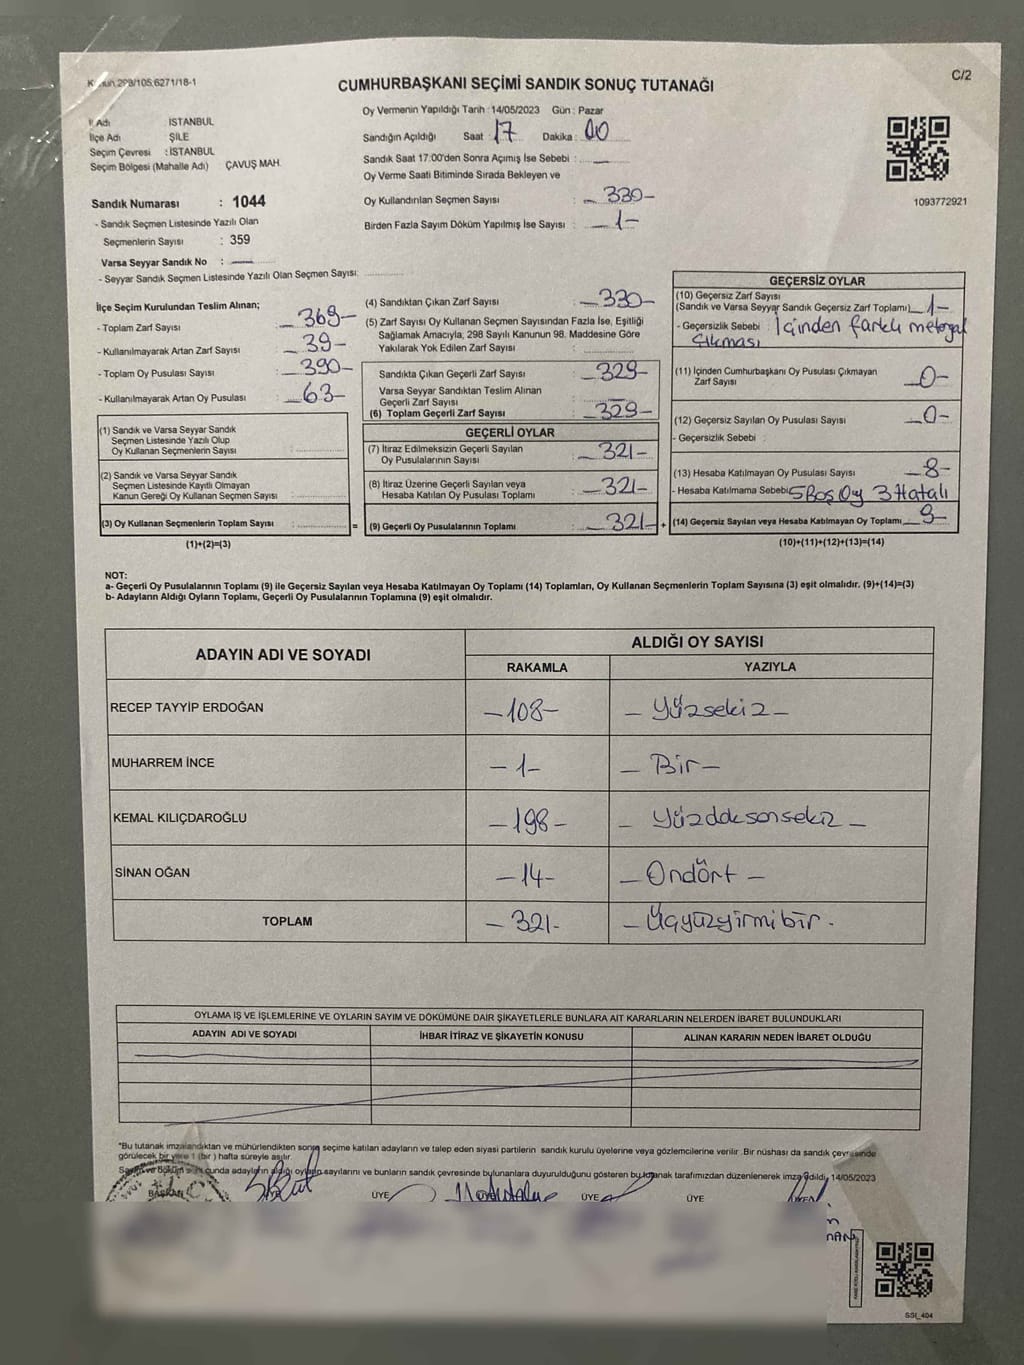 Kanun 298/105,6271/18-1
C/2
CUMHURBAŞKANI SEÇİMİ SANDIK SONUÇ TUTANAĞI
İl Adı İSTANBUL
İlçe Adı ŞİLE
Seçim Çevresi : İSTANBUL
Seçim Bölgesi (Mahalle Adı) ÇAVUŞ MAH.
Sandık Numarası : 1044
- Sandık Seçmen Listesinde Yazılı Olan
Seçmenlerin Sayısı : 359
Varsa Seyyar Sandık No :
- Seyyar Sandık Seçmen Listesinde Yazılı Olan Seçmen Sayısı:
Oy Vermenin Yapıldığı Tarih : 14/05/2023 Gün : Pazar
Sandığın Açıldığı Saat : 17 Dakika : 00
Sandık Saat 17:00'den Sonra Açımış İse Sebebi :
Oy Verme Saati Bitiminde Sırada Bekleyen ve
Oy Kullandırılan Seçmen Sayısı : 330-
Birden Fazla Sayım Döküm Yapılmış İse Sayısı : 1-
1093772921
İlçe Seçim Kurulundan Teslim Alınan;
- Toplam Zarf Sayısı 369-
- Kullanılmayarak Artan Zarf Sayısı 39-
- Toplam Oy Pusulası Sayısı 390-
- Kullanılmayarak Artan Oy Pusulası 63-
(1) Sandık ve Varsa Seyyar Sandık
Seçmen Listesinde Yazılı Olup
Oy Kullanan Seçmenlerin Sayısı
(2) Sandık ve Varsa Seyyar Sandık
Seçmen Listesinde Kayıtlı Olmayan
Kanun Gereği Oy Kullanan Seçmen Sayısı
(3) Oy Kullanan Seçmenlerin Toplam Sayısı : =
(1)+(2)=(3)
(4) Sandıktan Çıkan Zarf Sayısı : 330-
(5) Zarf Sayısı Oy Kullanan Seçmen Sayısından Fazla İse, Eşitliği
Sağlamak Amacıyla, 298 Sayılı Kanunun 98. Maddesine Göre
Yakılarak Yok Edilen Zarf Sayısı :
Sandıkta Çıkan Geçerli Zarf Sayısı : 329-
Varsa Seyyar Sandıktan Teslim Alınan
Geçerli Zarf Sayısı :
(6) Toplam Geçerli Zarf Sayısı : 329-
GEÇERLİ OYLAR
(7) İtiraz Edilmeksizin Geçerli Sayılan
Oy Pusulalarının Sayısı : 321-
(8) İtiraz Üzerine Geçerli Sayılan veya
Hesaba Katılan Oy Pusulası Toplamı : 321-
(9) Geçerli Oy Pusulalarının Toplamı : 321- +
GEÇERSİZ OYLAR
(10) Geçersiz Zarf Sayısı
(Sandık ve Varsa Seyyar Sandık Geçersiz Zarf Toplamı) 1-
- Geçersizlik Sebebi : İçinden farklı
çıkması
(11) İçinden Cumhurbaşkanı Oy Pusulası Çıkmayan
Zarf Sayısı 0-
(12) Geçersiz Sayılan Oy Pusulası Sayısı 0-
- Geçersizlik Sebebi :
(13) Hesaba Katılmayan Oy Pusulası Sayısı 8-
- Hesaba Katılmama Sebebi 5 Boş Oy 3 Hatalı
(14) Geçersiz Sayılan veya Hesaba Katılmayan Oy Toplamı 9-
(10)+(11)+(12)+(13)=(14)
NOT:
a- Geçerli Oy Pusulalarının Toplamı (9) ile Geçersiz Sayılan veya Hesaba Katılmayan Oy Toplamı (14) Toplamları, Oy Kullanan Seçmenlerin Toplam Sayısına (3) eşit olmalıdır. (9)+(14)=(3)
b- Adayların Aldığı Oyların Toplamı, Geçerli Oy Pusulalarının Toplamına (9) eşit olmalıdır.
ADAYIN ADI VE SOYADI ALDIĞI OY SAYISI
RAKAMLA YAZIYLA
RECEP TAYYİP ERDOĞAN -108- - Yüzsekiz -
MUHARREM İNCE -1- - Bir -
KEMAL KILIÇDAROĞLU -198- - Yüzdoksonsekiz -
SİNAN OĞAN -14- - Ondört -
TOPLAM -321- - Üçyüzyirmibir -
OYLAMA İŞ VE İŞLEMLERİNE VE OYLARIN SAYIM VE DÖKÜMÜNE DAİR ŞİKAYETLERLE BUNLARA AİT KARARLARIN NELERDEN İBARET BULUNDUKLARI
ADAYIN ADI VE SOYADI İHBAR İTİRAZ VE ŞİKAYETİN KONUSU ALINAN KARARIN NEDEN İBARET OLDUĞU
*Bu tutanak imzalandıktan ve mühürlendikten sonra seçime katılan adayların ve talep eden siyasi partilerin sandık kurulu üyelerine veya gözlemcilerine verilir. Bir nüshası da sandık çevresinde
görülecek bir yere 1 (bir) hafta süreyle asılır.
Sayım ve Döküm sonucunda adayların aldığı oyların sayılarını ve bunların sandık çevresinde bulunanlara duyurulduğunu gösteren bu tutanak tarafımızdan düzenlenerek imza edildi. 14/05/2023
BAŞKAN ÜYE ÜYE ÜYE
SSİ_404